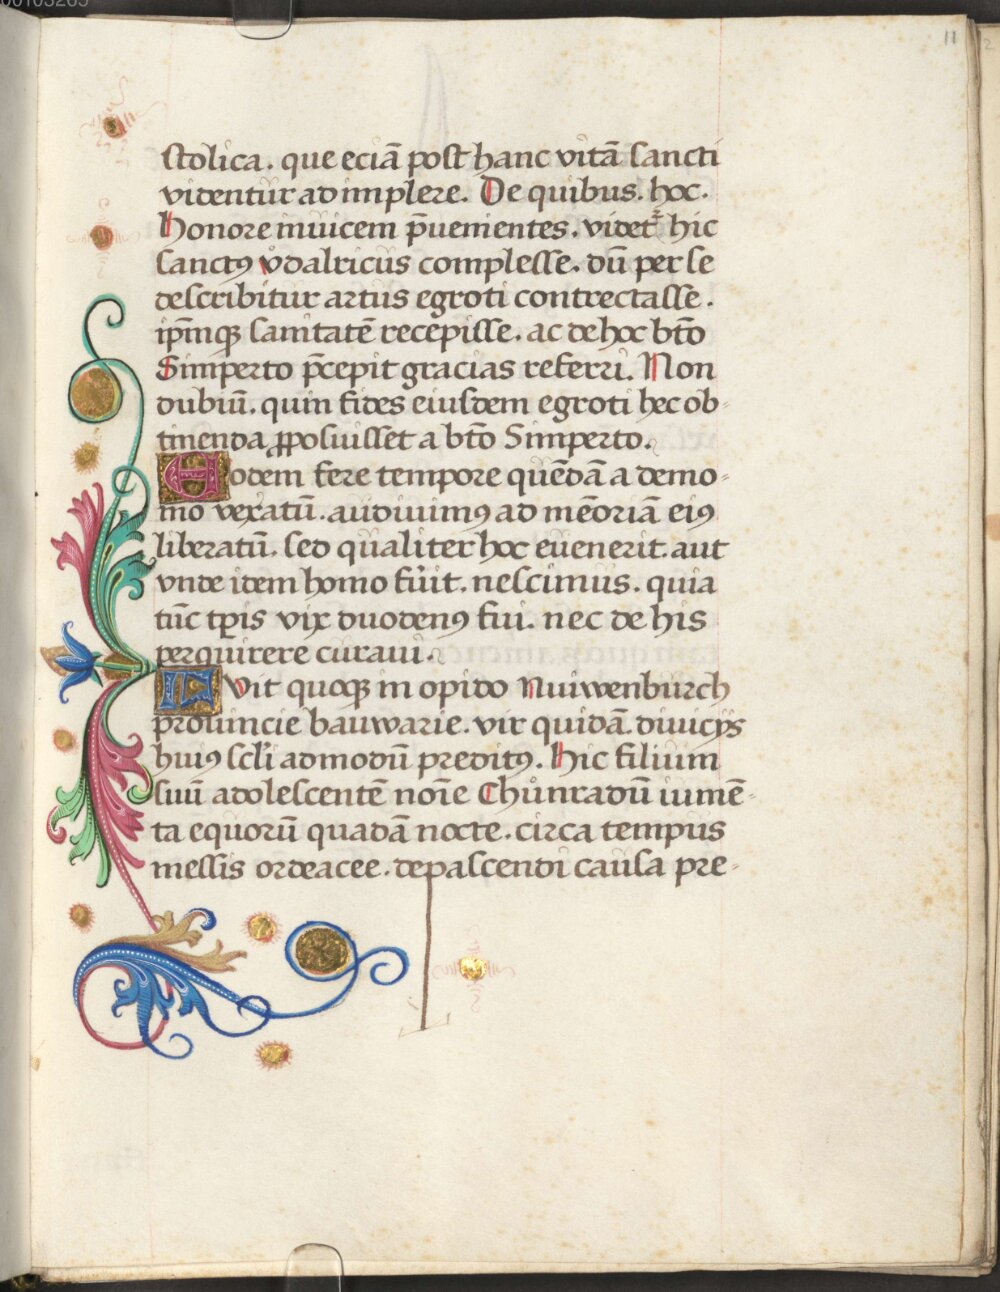 00103265
11
2
stolica. que eciā post hanc vitā sancti
videntur adimplere. De quibus. hoc.
Honore inuicem p̄uenientes. videt᷑ hic
sanctꝯ vͦdalricus complesse. dū per se
describitur artus egroti contrectasse.
ip̄mqꝫ sanitatē recepisse. ac de hoc bt̄o
Simperto p̄cepit gracias referri. Non
dubiū. quin fides eiusdem egroti hec ob-
tinenda ꝓposuisset a bt̄o Simperto.
Eodem fere tempore quēdā a demo-
nio vexatū. audiuimꝯ ad mēoriā eiꝯ
liberatū. sed qualiter hoc euenerit. aut
vnde idem homo fuit. nescimus. quia
tūc tp̄is vix duodenꝯ fui. nec de his
perquirere curaui.
Uvit quoqꝫ in opido Nuiwenburch
prouincie bauwarie. vir quidā. diuicijs
huiꝯ scl̄i admodū preditꝯ. Hic filium
suū adolescentē noīe Chuͦnradū iumē-
ta equorū quadā nocte. circa tempus
messis ordeacee. depascendi causa pre-